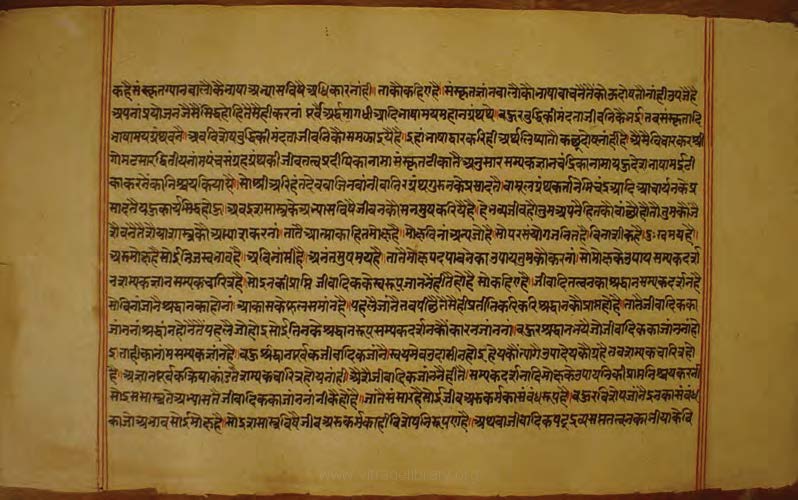 कहै संस्कृतग्यानवालौकै भाषा अभ्यासविषै अधिकार नांही। ताकौं कहिए है। संस्कृतज्ञानवालौंकौं भाषा वाचनैतैं कोऊ दोष तौ नांही उपजै है
अपनां प्रयोजन जैसैं सिद्धि होइ तैसैं ही करनां पूर्वै अर्द्धमागधी आदि भाषामय महान ग्रंथ थे। बहुरि बुद्धिकी मंदता जीवनिकै भई तब संस्कृतादि
भाषामय ग्रंथ बनै। अब विशेष बुद्धिकी मंदता जीवनिकै भई इहां भाषाद्वारकरि ही अर्थ लिष्या तौ कछू दोष नांही है। अैसैं विचारकर श्री
गोमटसार द्वितीयनाम पंचसंग्रह ग्रंथकी जीवतत्वप्रदीपिका नामा संस्कृतटीकातैं अनुसार सम्यकज्ञानचंद्रिका नामा यहु देशभाषामई टी
का करनेंका निश्चय किया है। सो श्री अरिहंतदेव वा जिनवांनी वा निर्ग्रंथगुरुनके प्रसादतैं। वा मूलग्रंथकर्ता नेमिचंद्र आदि आचार्यनके प्र
सादतैं यहु कार्य सिद्ध होहु। अब इस शास्त्रके अभ्यासविषै जीवनकौं सनमुष करिए है। हे भव्यजीव हो तुम अपनें हितकौं वांछौ हो तौ तुमकौं जै
सैं बनै तैसैं या शास्त्रकौ अभ्यास करनां। तातैं आत्माका हित मोक्ष है। मोक्ष विनां अन्य जो है। सो परसंयोगजनित है। विनाशीक है। दुःखमय है।
अर मोक्ष है सोई निजस्वभाव है। अविनासी है। अनंतसुषमय है। तातैं मोक्षपद पावनेका उपाय तुमकौं करनां। सो मोक्षके उपाय सम्यकदर्श
न सम्यकज्ञान सम्यकचारित्र है। सो इनकी प्राप्ति जीवादिककै स्वरूप जाननें ही तैं हो है सो कहिए है। जीवादि तत्वनका श्रद्धान सम्यकदर्शन है
सो विनां जानें श्रद्धानका होनां आकासकै फूल समांन है। पहलै जानैं तब पीछै तैसैं ही प्रतीति करि करि श्रद्धानकौं प्राप्त हो है। तातैं जीवादिकका
जांननां श्रद्धान होनेंतैं पहलै जो होइ सोई तिनके श्रद्धानरूप सम्यकदर्शनकौ कारन जाननां। बहुरि श्रद्धान भयें जो जीवादिकका जांननां हो
इ ताहीका नांम सम्यकज्ञांन है। बहुरि श्रद्धानपूर्वक जीवादिक जांनें स्वयमेव उदासीन होइ हेयकौं त्यागै उपादेयकौं ग्रहै तब सम्यकचारित्र हो
है। अज्ञानपूर्वक क्रियाकांडतैं सम्यकचारित्र होय नांही। अैसैं जीवादिक जांननें ही तैं। सम्यकदर्शनादि मोक्षके उपायनिकी प्राप्ति निश्चय करनां
सो इस शास्त्रके अभ्यासतैं जीवादिकका जांननां नीकैं हो है। जातैं संसार है सोई जीव अर कर्मका संबंधरूप है। बहुरि विशेष जांनैं इनका संबंध
का जो अभाव सोई मोक्ष है। सो इस शास्त्रविषै जीव अर कर्मका ही विशेष निरूपण है। अथवा जीवादिक षट्द्रव्य सप्ततत्वनका
www.vitragelibrary.org